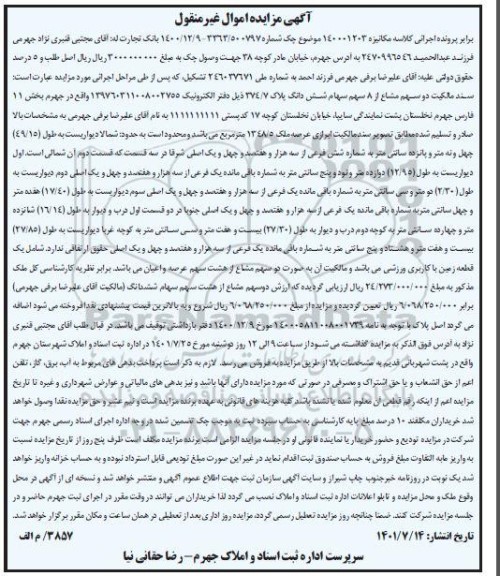 آگهی مزایده اموال غیرمنقول
برابر پرونده اجرائی کلاسه مکانیزه ۱۴۰۰۰۱۲۰۳ موضوع چک شماره ۳۳۶۳/۵۰۰۷۹۷-۱۴۰۰/۱۲/۹ بانک تجارت له: آقای مجتبی قنبری نژاد جهرمی
فرزند عبدالحمید ۲۴۷۰۹۹۶۵۴۶ به آدرس جهرم، خیابان مادر کوچه ۳۸ جهت وصول چک به مبلغ ۳۰۰۰۰۰۰۰۰۰ ریال اصل طلب و ۵ درصد
حقوق دولتی علیه: آقای علیرضا برقی جهرمی فرزند احمد به شماره ملی ۲۴۶۰۳۷۶۷۱ تشکیل، که پس از طی مراحل اجرائی مورد مزایده عبارت است:
سند مالکیت دو سهم مشاع از ۸ سهم سهام شش دانگ پلاک ۳۷۴/۷ ذیل دفتر الکترونیک ۱۳۹۷۶۰۳۱۱۰۰۸۰۰۲۷۵۵ واقع در جهرم بخش ۱۱
فارس جهرم نخلستان پشت نمایندگی سایپا، خیابان نخلستان کوچه ۱۷ کدپستی ۱۱۱۱۱۱۱۱۱۱ به نام آقای علیرضا برقی جهرمی به مشخصات بالا
صادر و تسلیم شده مطابق تصویر سند مالکیت ابرازی عرصه ملک ۱۳۴۸/۵ مترمربع می باشد و محدود است به حدود: شمالا دیواریست به طول (۴۹/۱۵)
چهل و نه متر و پانزده سانتی متر به شماره شش فرعی از سه هزار و هفتصد و چهل و یک اصلی شرقا در سه قسمت که قسمت دوم آن شمالی است، اول
دیواریست به طول (۱۲/۹۵) دوازده متر و نود و پنج سانتی متر به شماره باقی مانده یک فرعی از سه هزار و هفتصد و چهل و یک اصلی، دوم دیواریست به
طول (۲/۳۰) دو متر و سی سانتی متر به شماره باقی مانده یک فرعی از سه هزار و هفتصد و چهل و یک اصلی سوم دیواریست به طول (۱۷/۴۰) هفده متر
و چهل سانتی متر به شماره باقی مانده یک فرعی از سه هزار و هفتصد و چهل و یک اصلی جنوبا در دو قسمت اول درب و دیوار به طول (۱۶/۱۴) شانزده
متر و چهارده سانتی متر به کوچه دوم درب و دیوار به طول (۲۷/۳۰) بیست و هفت متر و سی سانتی متر به کوچه غربا دیواریست به طول (۲۷/۸۵)
بیست و هفت متر و هشتاد و پنج سانتی متر به شماره باقی مانده یک فرعی از سه هزار و هفتصد و چهل و یک اصلی حقوق ارتفاقی ندارد. شامل یک
قطعه زمین با کاربری ورزشی می باشد و مالکیت آن به صورت دو سهم مشاع از هشت سهم عرصه و اعیان می باشد. برابر نظریه کارشناسی کل ملک
مذکور به مبلغ ۲۴/۲۷۳/۰۰۰/۰۰۰ ریال ارزیابی گردیده که ارزش دوسهم مشاع از هشت سهم سهام ششدانگ (مالکیت آقای علیرضا برقی جهرمی)
برابر ۶/۰۶۸/۲۵۰/۰۰۰ ریال تعیین گردیده و مزایده از مبلغ ۶/۰۶۸/۲۵۰/۰۰۰ ریال شروع و به بالاترین قیمت پیشنهادی نقدا فروخته می شود. اضافه
می گردد اصل پلاک با توجه به نامه ۱۴۰۰۰۵۸۱۱۰۰۸۰۰۱۷۳۹ مورخ ۱۴۰۰/۱۲/۹ دفتر بازداشتی توقیف می باشد. در قبال طلب آقای مجتبی قنبری
نژاد به آدرس فوق الذکر به مزایده گذاشته می شود از ساعت ۹ الی ۱۲ روز دوشنبه مورخ ۱۴۰۱/۷/۲۵ در اداره ثبت اسناد و املاک شهرستان جهرم
واقع در پشت شهربانی قدیم به مشخصات بالا از طریق مزایده به فروش می رسد. لازم به ذکر است پرداخت بدهی های مربوط به آب، برق، گاز، تلفن
اعم از حق انشعاب و یا حق اشتراک و مصرفی در صورتی که مورد مزایده دارای آنها باشد و نیز بدهی های مالیاتی و عوارض شهرداری و غیره تا تاریخ
مزایده اعم از اینکه رقم قطعی آن معلوم شده یا نشده باشد کلیه هزینه های قانونی به عهده برنده مزایده است و نیم عشر و حق مزایده نقدا وصول خواهد
شد خریداران مکلفند ۱۰ درصد مبلغ پایه کارشناسی به حساب سپرده ثبت به صورت چک تضمین شده در وجه اداره اجرای اسناد رسمی جهرم جهت
شرکت در مزایده تودیع و حضور خریدار یا نماینده قانونی او در جلسه مزایده الزامی است برنده مزایده مکلف است ظرف پنج روز از تاریخ مزایده نسبت
به واریز مابه التفاوت مبلغ فروش به حساب صندوق ثبت اقدام نماید در غیر این صورت مبلغ تودیعی قابل استرداد نبوده و به حساب خزانه واریز خواهد
شد یک نوبت در روزنامه خبرجنوب چاپ شیراز و سایت آگهی سازمان ثبت جهت اطلاع عموم آگهی و منتشر خواهد شد و نسخه ای از آگهی در محل
وقوع ملک و محل مزایده و تابلو اعلانات اداره ثبت اسناد و املاک نصب می گردد لذا خریداران می توانند در وقت مقرر در اجرای ثبت جهرم حاضر و در
جلسه مزایده شرکت کنند. ضمنا چنانچه روز مزایده تعطیل رسمی گردد، مزایده روز اداری بعد از تعطیلی در همان ساعت و مکان مقرر برگزار خواهد شد.
تاریخ انتشار: ۱۴۰۱/۷/۱۴ ۳۸۵۷/م الف
سرپرست اداره ثبت اسناد و املاک جهرم – رضا حقانی نیا